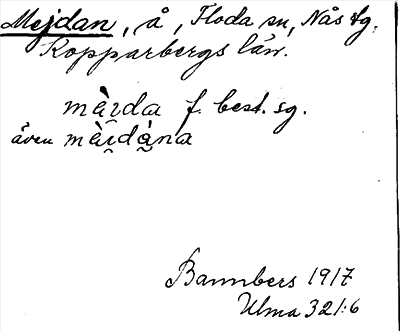 Mejdan, å, Floda sn, Nås tg,
Kopparbergs län.
mài̯da f. best. sg.
även mài̯dà̯na
Bannbers 1917
Ulma 321:6